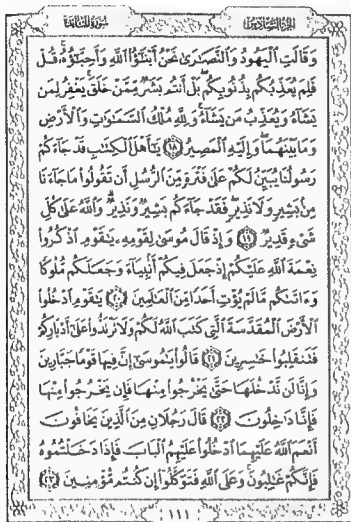 الجزء السادس سورة المائدة
وَقَالَتِ ٱلْيَهُودُ وَٱلنَّصَٰرَىٰ نَحْنُ أَبْنَٰٓؤُا۟ ٱللَّهِ وَأَحِبَّٰٓؤُهُۥ ۚ قُلْ
فَلِمَ يُعَذِّبُكُم بِذُنُوبِكُم ۖ بَلْ أَنتُم بَشَرٌ مِّمَّنْ خَلَقَ ۚ يَغْفِرُ لِمَن
يَشَآءُ وَيُعَذِّبُ مَن يَشَآءُ ۚ وَلِلَّهِ مُلْكُ ٱلسَّمَٰوَٰتِ وَٱلْأَرْضِ
وَمَا بَيْنَهُمَا ۖ وَإِلَيْهِ ٱلْمَصِيرُ ١٨ يَٰٓأَهْلَ ٱلْكِتَٰبِ قَدْ جَآءَكُمْ
رَسُولُنَا يُبَيِّنُ لَكُمْ عَلَىٰ فَتْرَةٍ مِّنَ ٱلرُّسُلِ أَن تَقُولُوا۟ مَا جَآءَنَا
مِنۢ بَشِيرٍ وَلَا نَذِيرٍ ۖ فَقَدْ جَآءَكُم بَشِيرٌ وَنَذِيرٌ ۗ وَٱللَّهُ عَلَىٰ كُلِّ
شَىْءٍ قَدِيرٌ ١٩ وَإِذْ قَالَ مُوسَىٰ لِقَوْمِهِۦ يَٰقَوْمِ ٱذْكُرُوا۟
نِعْمَةَ ٱللَّهِ عَلَيْكُمْ إِذْ جَعَلَ فِيكُمْ أَنۢبِيَآءَ وَجَعَلَكُم مُّلُوكًا
وَءَاتَىٰكُم مَّا لَمْ يُؤْتِ أَحَدًا مِّنَ ٱلْعَٰلَمِينَ ٢٠ يَٰقَوْمِ ٱدْخُلُوا۟
ٱلْأَرْضَ ٱلْمُقَدَّسَةَ ٱلَّتِى كَتَبَ ٱللَّهُ لَكُمْ وَلَا تَرْتَدُّوا۟ عَلَىٰٓ أَدْبَارِكُمْ
فَتَنقَلِبُوا۟ خَٰسِرِينَ ٢١ قَالُوا۟ يَٰمُوسَىٰٓ إِنَّ فِيهَا قَوْمًا جَبَّارِينَ
وَإِنَّا لَن نَّدْخُلَهَا حَتَّىٰ يَخْرُجُوا۟ مِنْهَا فَإِن يَخْرُجُوا۟ مِنْهَا
فَإِنَّا دَٰخِلُونَ ٢٢ قَالَ رَجُلَانِ مِنَ ٱلَّذِينَ يَخَافُونَ
أَنْعَمَ ٱللَّهُ عَلَيْهِمَا ٱدْخُلُوا۟ عَلَيْهِمُ ٱلْبَابَ فَإِذَا دَخَلْتُمُوهُ
فَإِنَّكُمْ غَٰلِبُونَ ۚ وَعَلَى ٱللَّهِ فَتَوَكَّلُوٓا۟ إِن كُنتُم مُّؤْمِنِينَ ٢٣
١١١